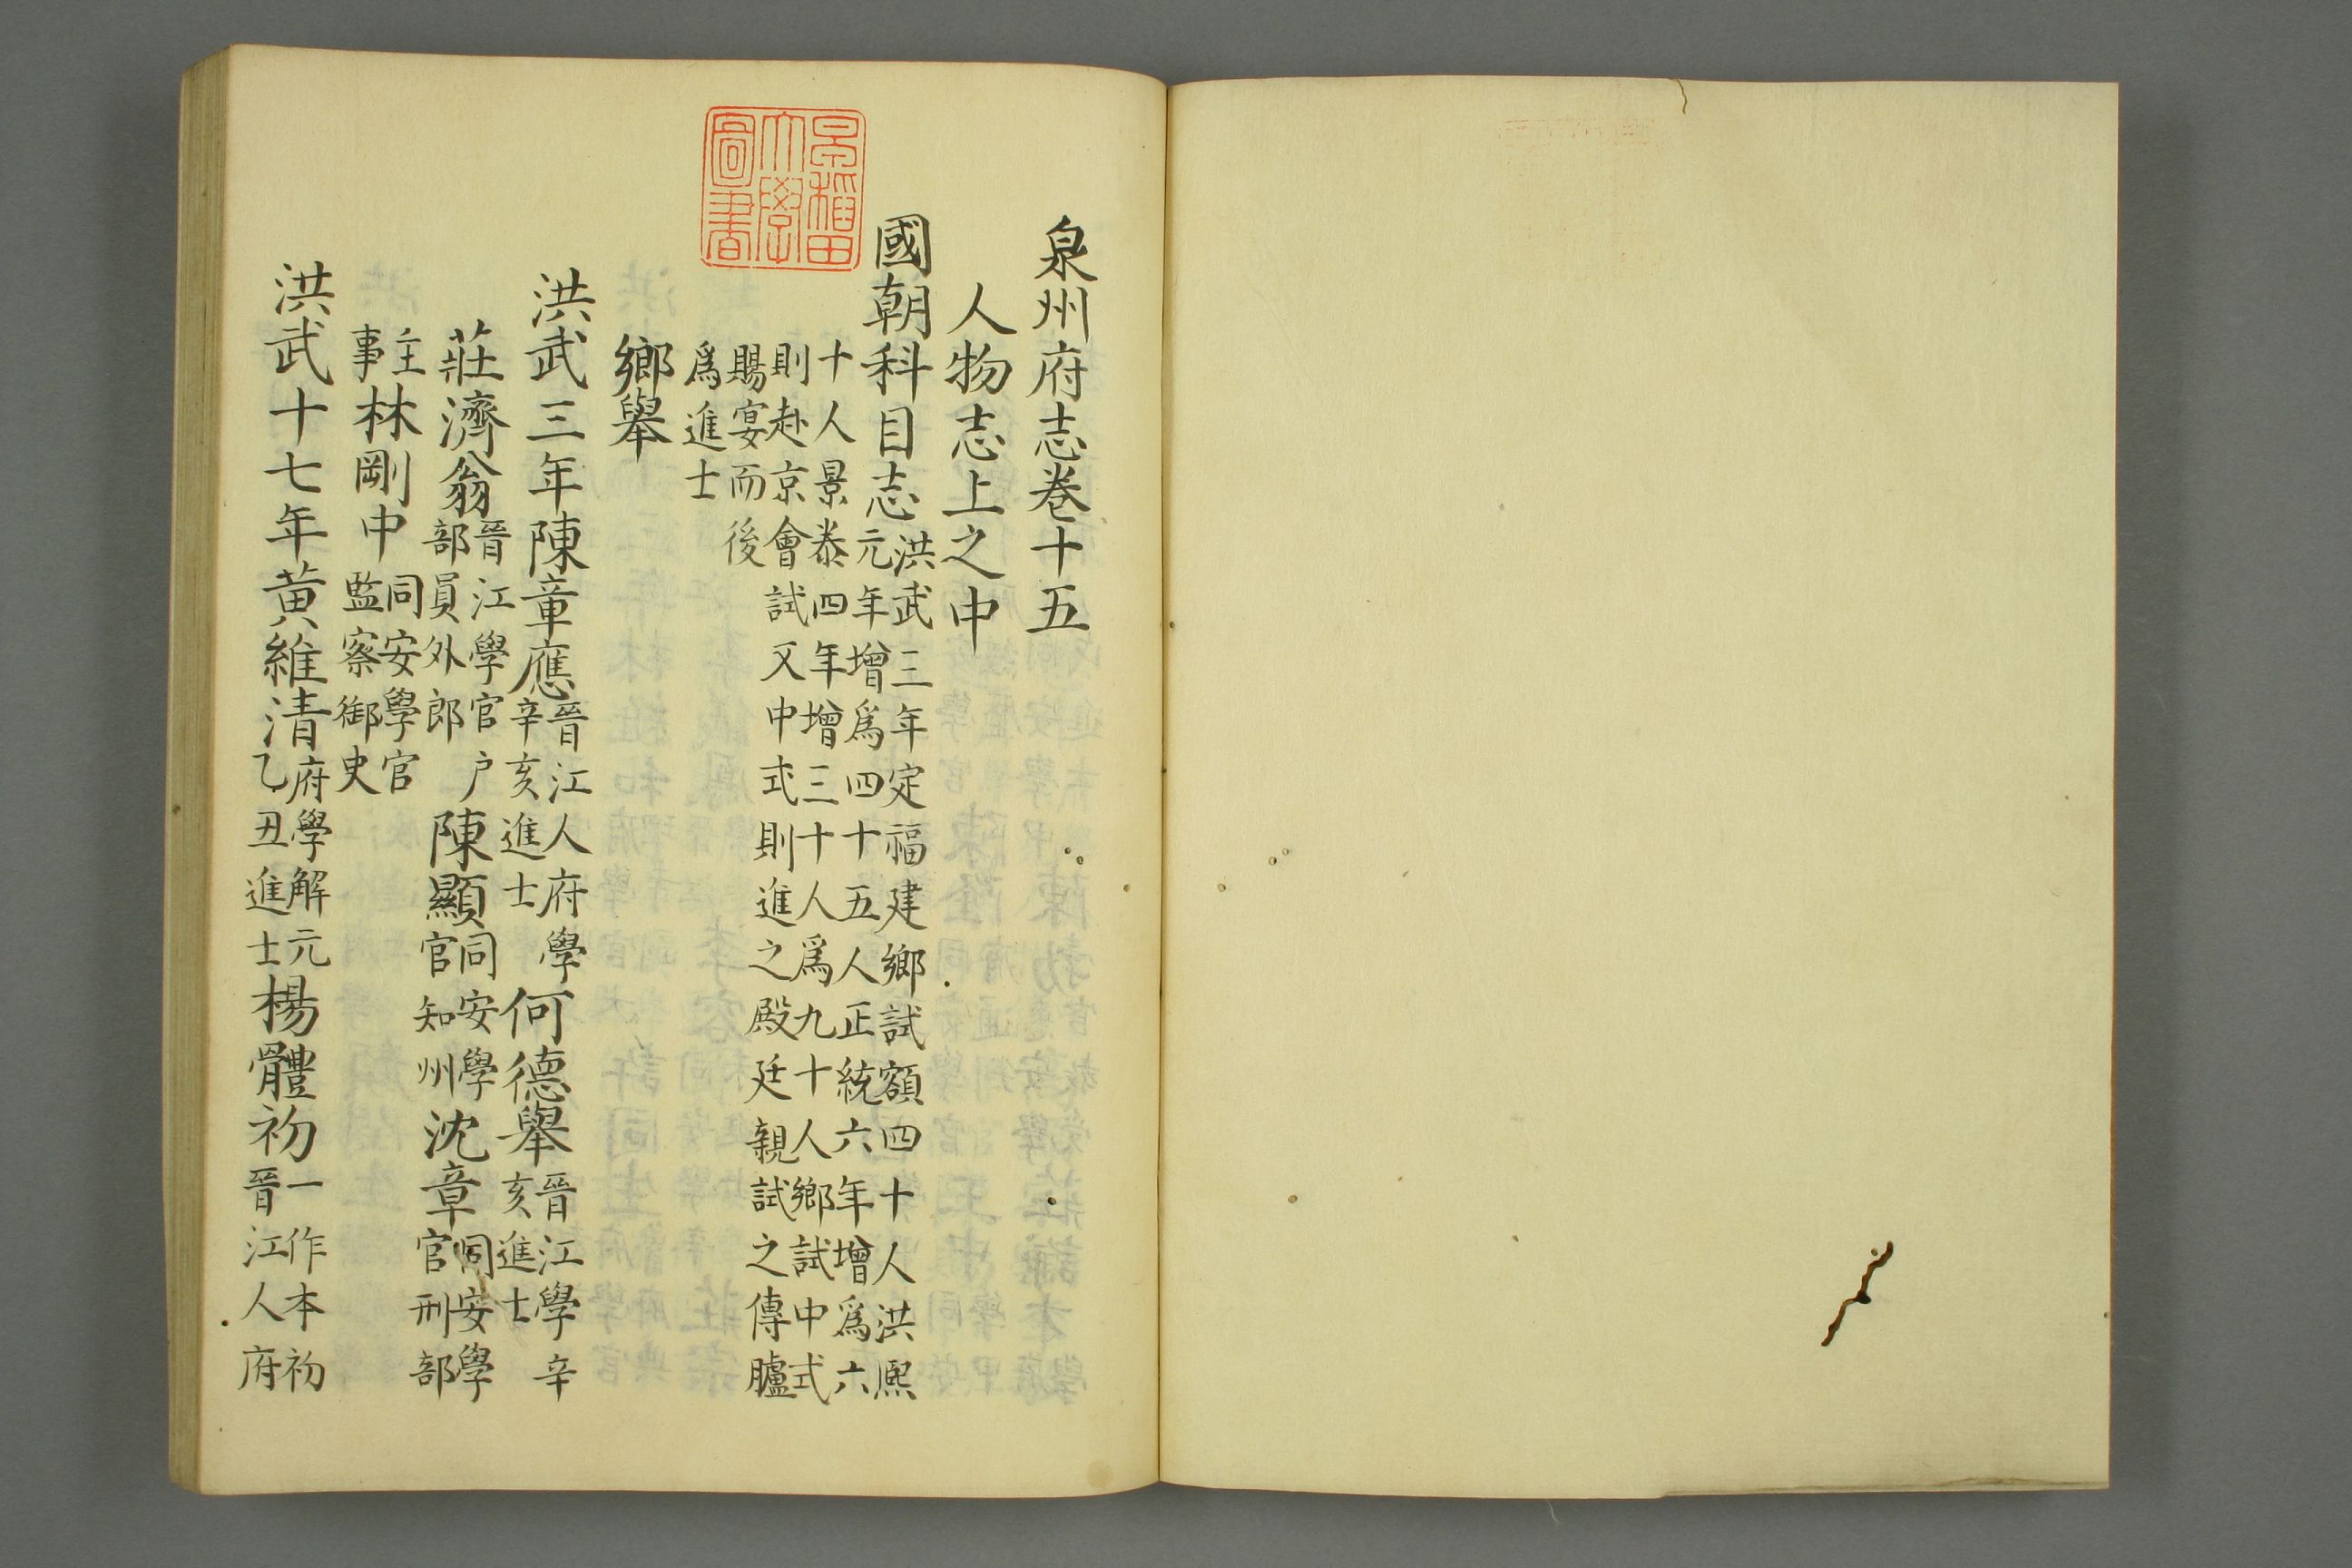 泉州府志卷十五
人物志上之中
國朝科目志洪武三年定福建鄉試額四十人洪熈元年增爲四十五人正統六年增爲六
十人景泰四年增三十人爲九十人鄉試中式則赴京會試又中式則進之殿廷親試之傳臚
賜宴而後爲進士
鄉舉
洪武三年陳章應晉江人府學辛亥進士何德舉晉江學辛亥進士
莊濟翁晉江學官户部員外郎陳顯同安學官知州沈章同安學官刑部
主事林剛中同安學官監察御史
洪武十七年黄維清府學解元乙丑進士楊體初一作本初晉江人府
早稻田大學圖書